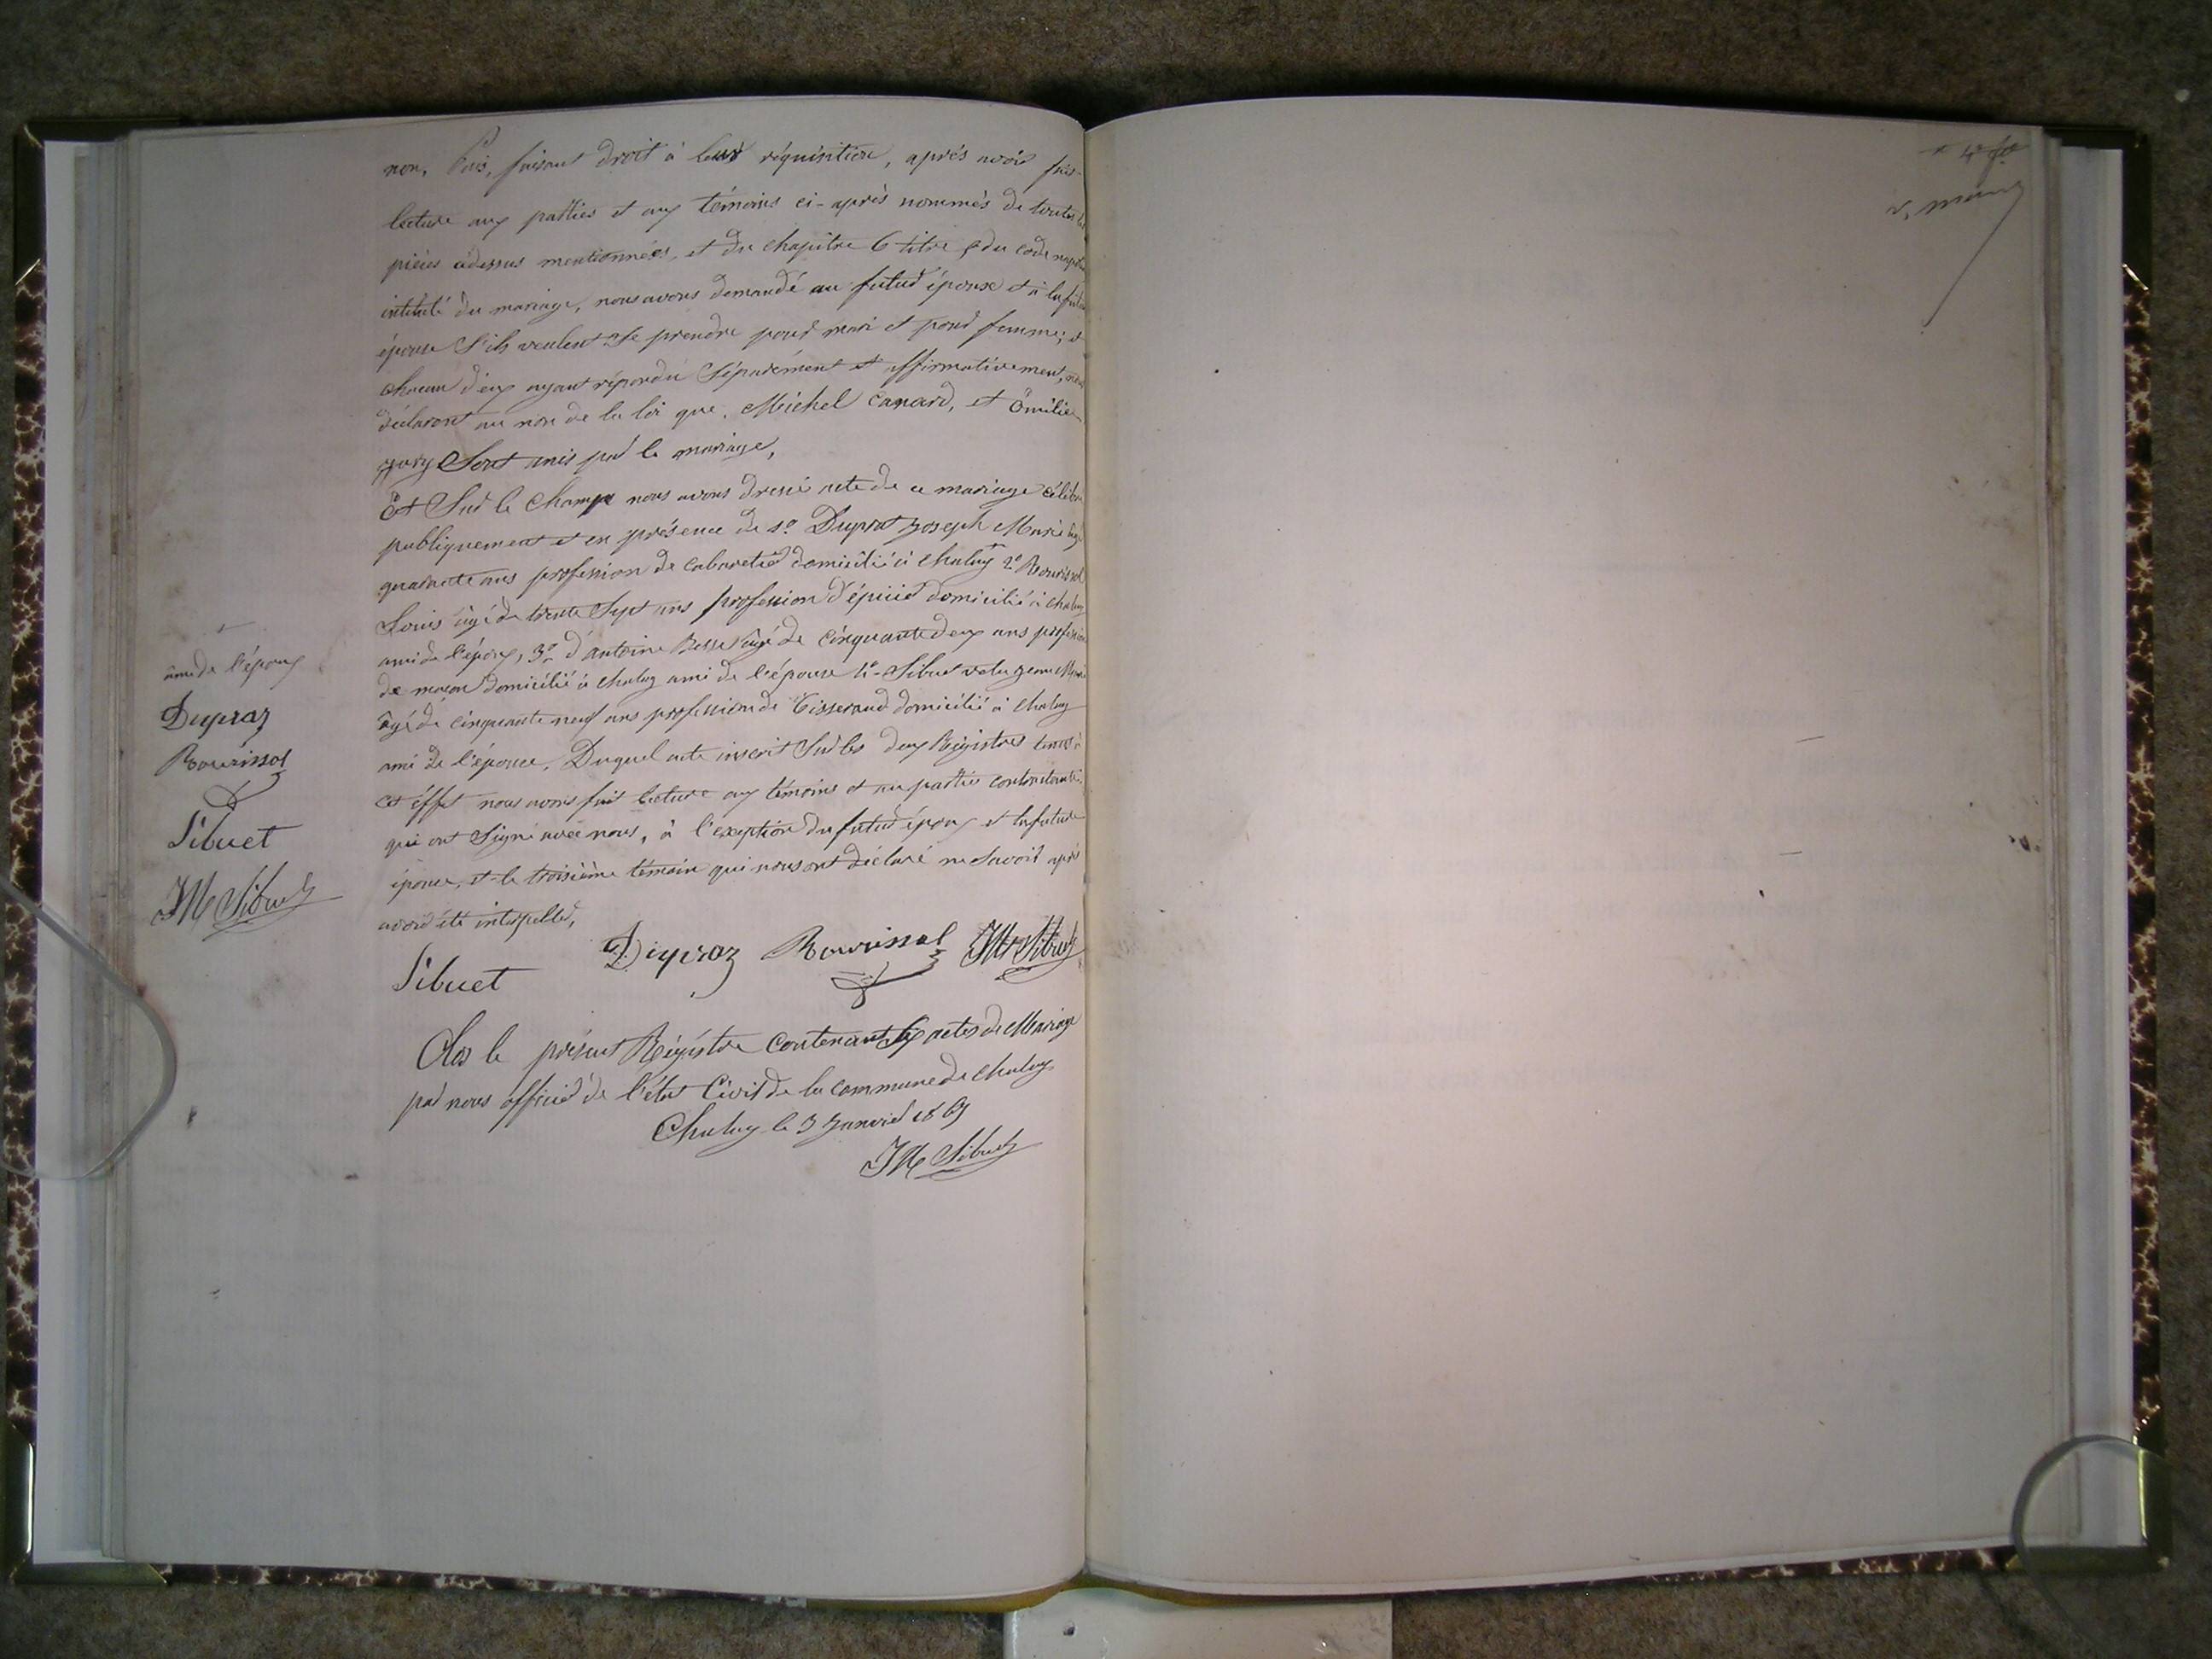 non. Puis, faisant droit à leur réquisition, après avoir fait
lecture aux parties et aux témoins ci-après nommés de toutes les
pièces cidessus mentionnées, et du chapitre 6 titre 5 du code napol
intitulé du mariage, nous avons demandé au futur épouse et à la futur
épouse S'ils veulent Se prendre pour mari et pour femme; et
chacun d'eux ayant répondu Séparément et affirmativement, nous
déclarons au non de la loi que, Michel Canard, et Emilie
Sont unis par le mariage,
Et Sur le Champ nous avons dressé acte de ce mariage célébré
publiquement et en présence de 1º Duprat Joseph Marie âgé
quarante ans profession de cabaretier domicilié à chaluy + 2º Rourissol
Louis âgé de trente Sept ans profession d'épicier domicilié à chaluy
ami de l'époux, 3º d'antoine Besse âgé de cinquante deux ans profession
de maçon domicilié à chaluy ami de l'épouse 4º Sibuet Jean Marie
âgé de cinquante neuf ans profession de Tisserand domicilié à chaluy
ami de l'épouse, Duquel acte inscrit Sur les deux Régistres tenus à
cet éffet nous avons fait lecture aux témoins et au parties contractantes
qui ont Signé avec nous, à l'exception du futur époux et la future
épouse, et le troisième témoin qui nous ont déclaré ne Savoir après
avoir été interpellés,
Sibuet Dupraz Rourissol JM Sibuet
+
ami de l'époux
Dupraz
Rourissol
Sibuet
JM Sibuet
Clos le présent Régistre Contenant Six actes de Mariage
par nous officier de l'état Civil de la commune de chaluy
Chaluy le 3 Janvier 1869
JM Sibuet